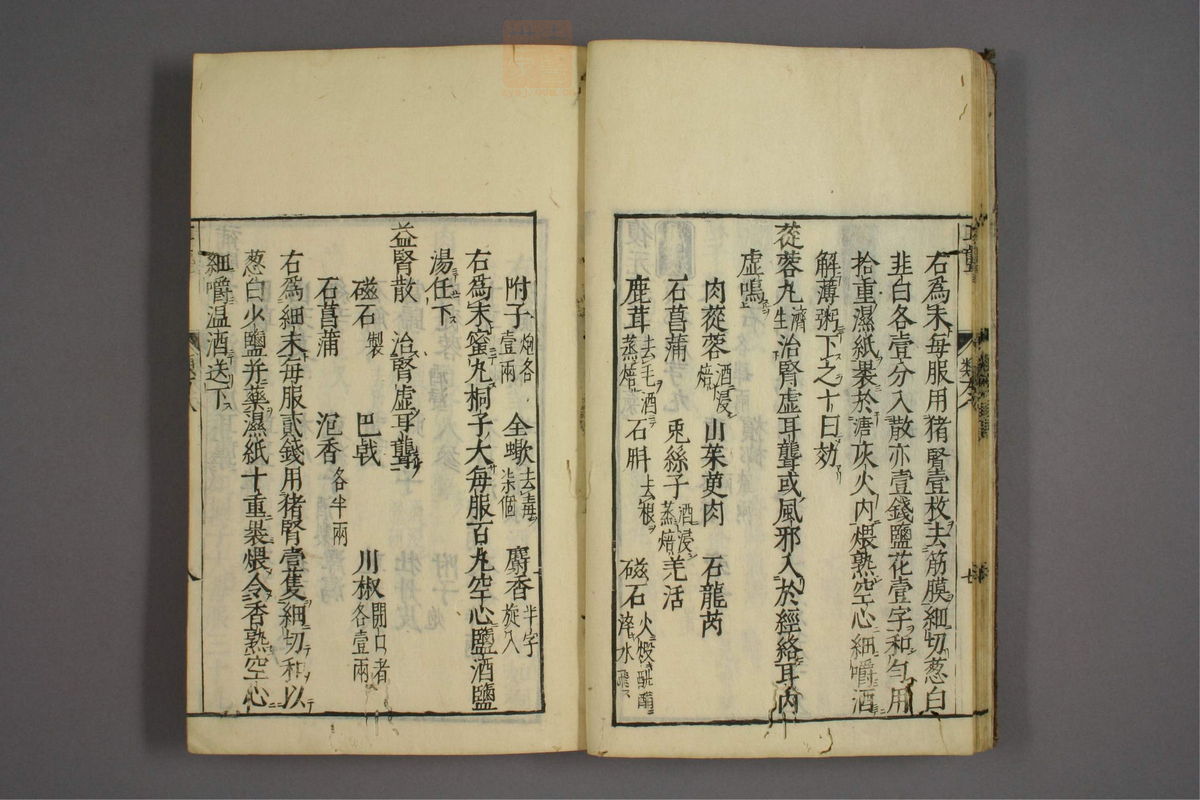 右爲末毎服用猪腎壹枚去筋膜細切葱白
韭白各壹分入散亦壹錢鹽花壹字和勻用
拾重濕紙裹於溏灰火内煨熟空心細嚼酒
解薄粥下之十日効
蓯蓉丸濟生治腎虚耳聾或風邪入於經絡耳内
虚鳴
肉蓯蓉酒浸焙 山茱萸肉 石龍芮
石菖蒲 兎絲子酒浸蒸焙 羌活
鹿茸去毛酒蒸焙 石斛去根 磁石火煅醋淬水飛
七
附子炮各壹兩 全蠍去毒柒個 麝香半字旋入
右爲末蜜丸桐子大毎服百丸空心鹽酒鹽
湯任下
益腎散 治腎虚耳聾
磁石製 巴戟 川椒開口者各壹兩
石菖蒲 沉香各半兩
右爲細末毎服貳錢用猪腎壹隻細切和以
葱白少鹽并藥濕紙十重裹煨令香熟空心
細嚼温酒送下